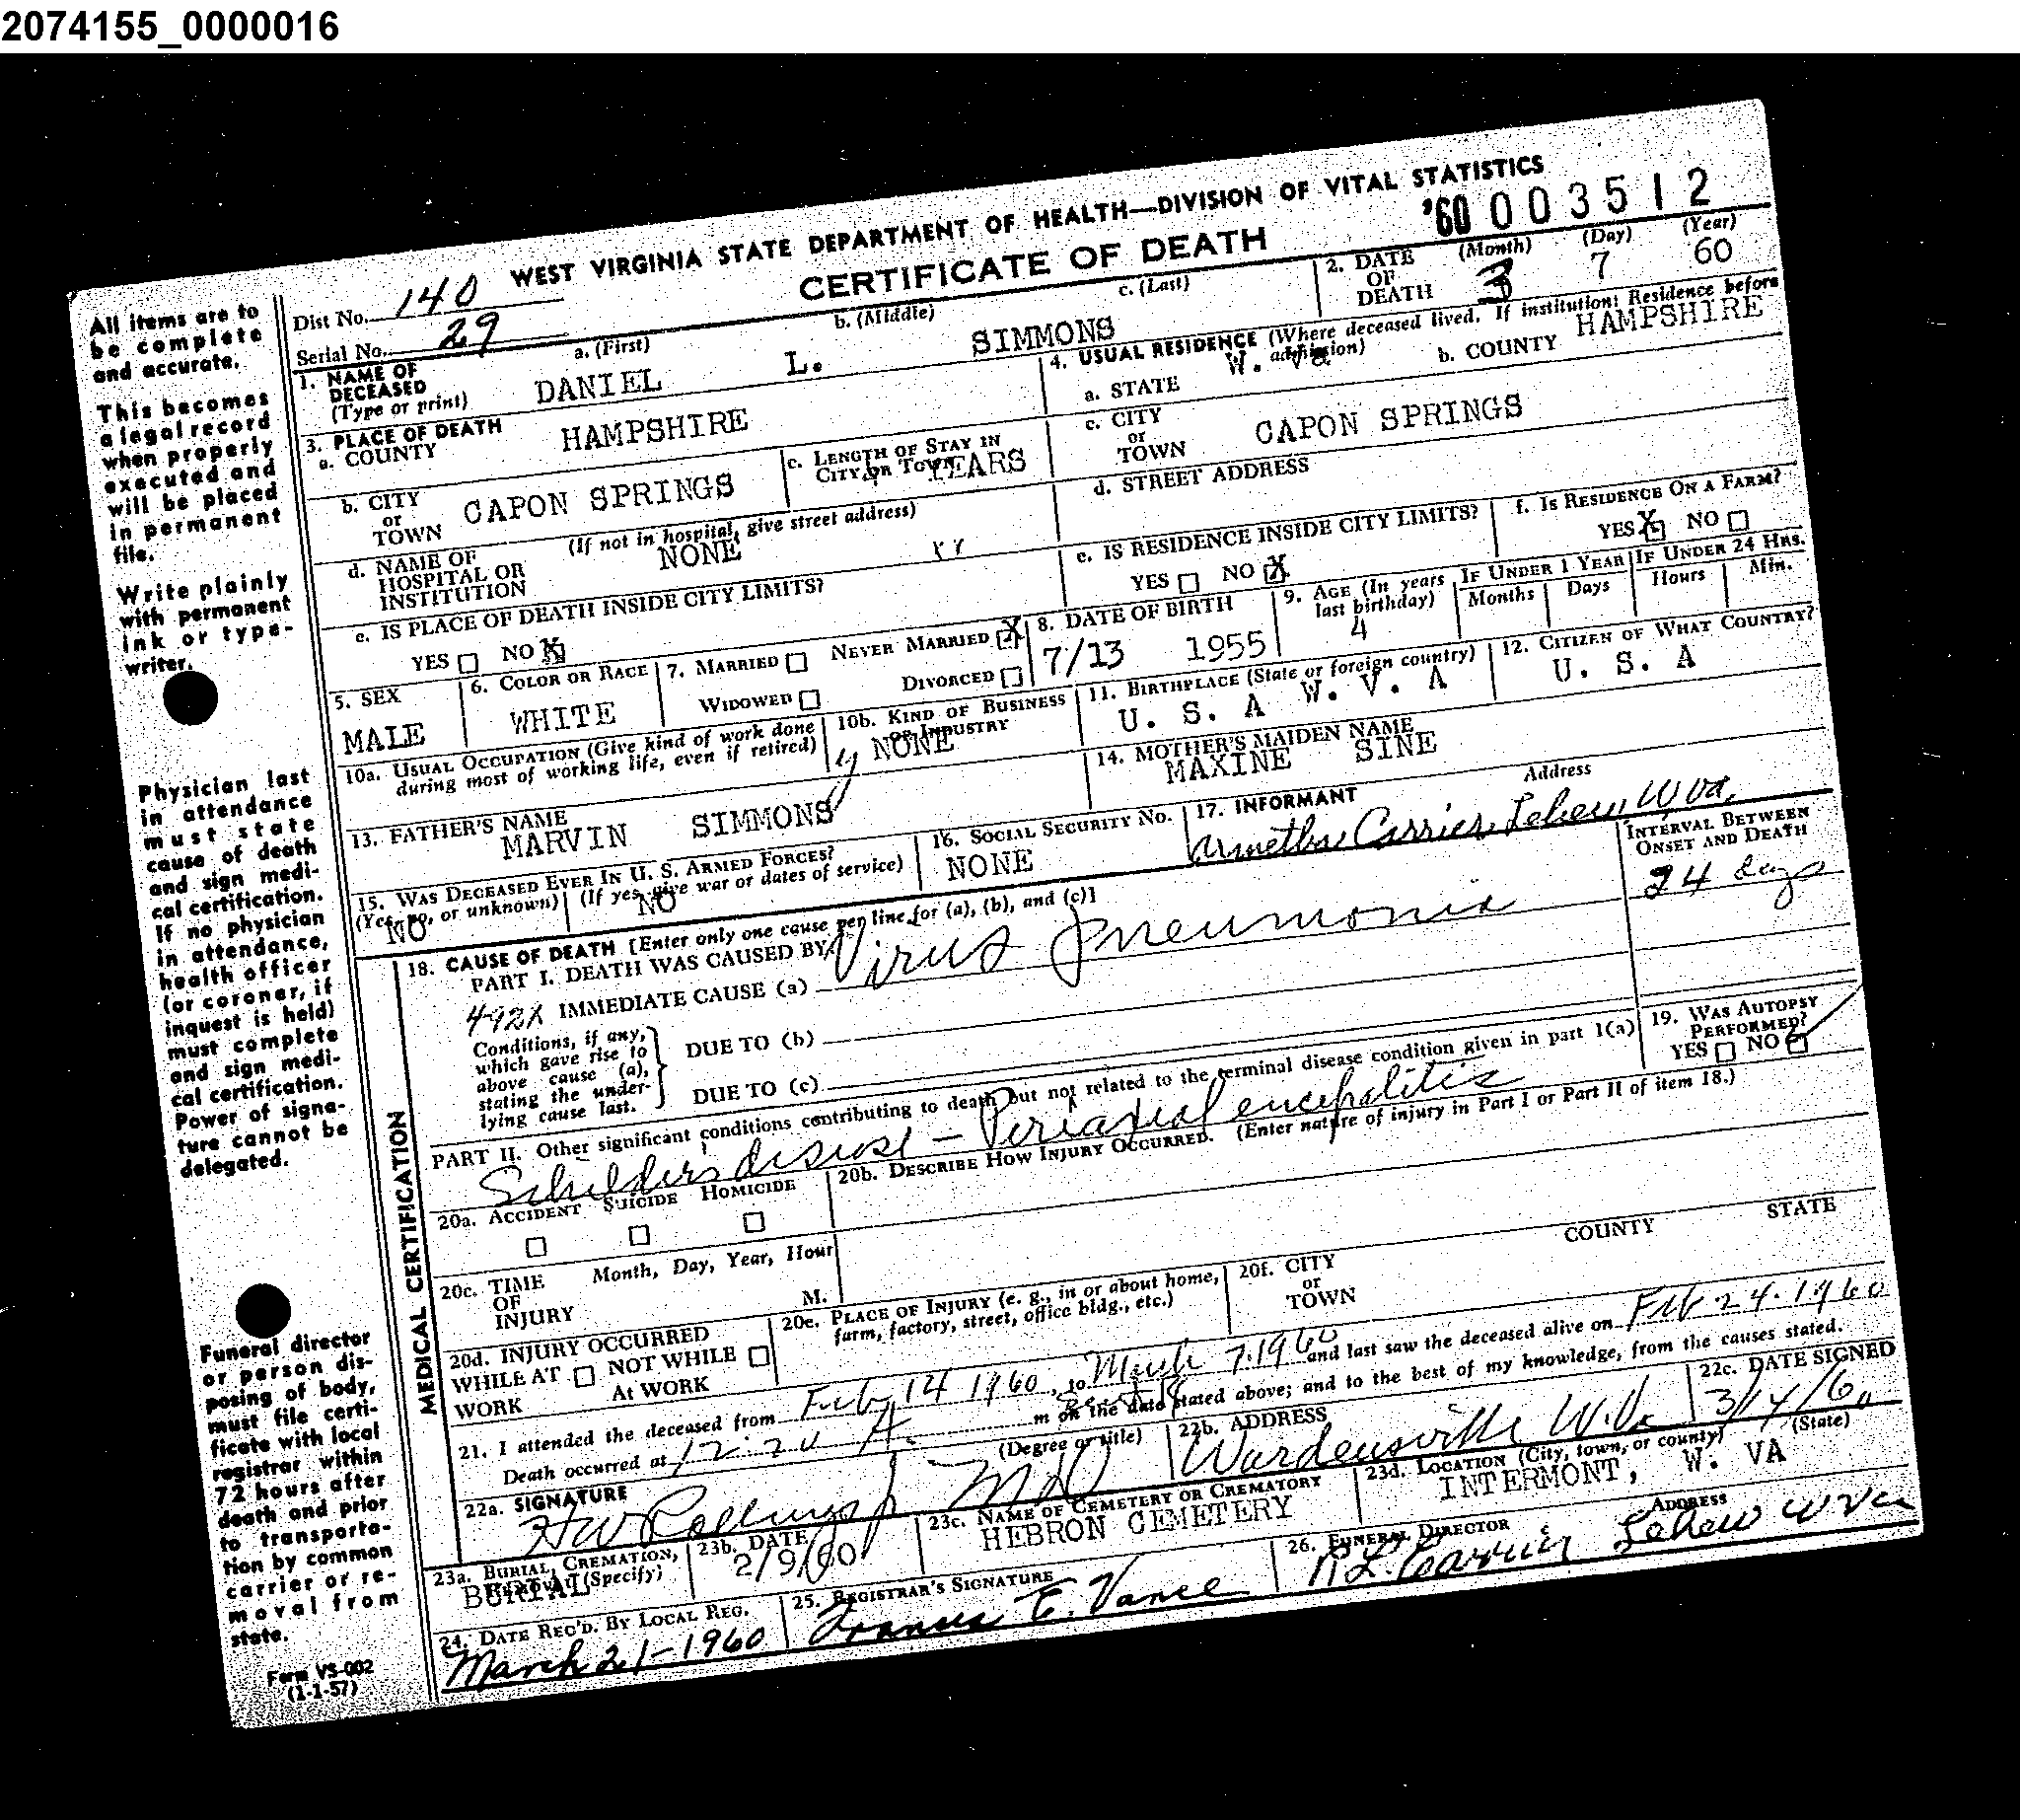 2074155_0000016
WEST VIRGINIA STATE DEPARTMENT OF HEALTH—DIVISION OF VITAL STATISTICS
CERTIFICATE OF DEATH
'60 003512
All items are to
be complete
and accurate.
This becomes
a legal record
when properly
executed and
will be placed
in permanent
file.
Write plainly
with permanent
ink or type-
writer.
Physician last
in attendance
must state
cause of death
and sign medi-
cal certification.
If no physician
in attendance,
health officer
(or coroner, if
inquest is held)
must complete
and sign medi-
cal certification.
Power of signa-
ture cannot be
delegated.
Funeral director
or person dis-
posing of body,
must file certi-
ficate with local
registrar within
72 hours after
death and prior
to transporta-
tion by common
carrier or re-
moval from
state.
Form VS-002
(1-1-57)
Dist No. 140
Serial No. 29
1. NAME OF DECEASED (Type or print)
a. (First) DANIEL
b. (Middle) L.
c. (Last) SIMMONS
2. DATE OF DEATH (Month) (Day) (Year)
3 7 60
3. PLACE OF DEATH
a. COUNTY HAMPSHIRE
b. CITY or TOWN CAPON SPRINGS
c. LENGTH OF STAY IN CITY OR TOWN YEARS
d. NAME OF HOSPITAL OR INSTITUTION (If not in hospital, give street address)
NONE
e. IS PLACE OF DEATH INSIDE CITY LIMITS?
YES NO X
4. USUAL RESIDENCE (Where deceased lived. If institution: Residence before admission)
a. STATE W. Va
b. COUNTY HAMPSHIRE
c. CITY or TOWN CAPON SPRINGS
d. STREET ADDRESS
e. IS RESIDENCE INSIDE CITY LIMITS?
YES NO X
f. IS RESIDENCE ON A FARM?
YES X NO
5. SEX
MALE
6. COLOR OR RACE
WHITE
7. MARRIED NEVER MARRIED X
WIDOWED DIVORCED
8. DATE OF BIRTH
7/13 1955
9. AGE (In years last birthday)
4
IF UNDER 1 YEAR
Months Days
IF UNDER 24 HRS.
Hours Min.
10a. USUAL OCCUPATION (Give kind of work done during most of working life, even if retired)
10b. KIND OF BUSINESS OR INDUSTRY
NONE
11. BIRTHPLACE (State or foreign country)
U. S. A W. V. A
12. CITIZEN OF WHAT COUNTRY?
U. S. A
13. FATHER'S NAME
MARVIN SIMMONS
14. MOTHER'S MAIDEN NAME
MAXINE SINE
15. WAS DECEASED EVER IN U. S. ARMED FORCES?
(Yes, no, or unknown) (If yes, give war or dates of service)
NO NO
16. SOCIAL SECURITY No.
NONE
17. INFORMANT Address
Carrier Lehew, W Va.
MEDICAL CERTIFICATION
18. CAUSE OF DEATH [Enter only one cause per line for (a), (b), and (c)]
PART I. DEATH WAS CAUSED BY:
492X IMMEDIATE CAUSE (a) Virus Pneumonia
INTERVAL BETWEEN ONSET AND DEATH
24 days
Conditions, if any,
which gave rise to
above cause (a),
stating the under-
lying cause last.
DUE TO (b)
DUE TO (c)
PART II. Other significant conditions contributing to death but not related to the terminal disease condition given in part I(a)
Schilders disease - Periaxial encephalitis
19. WAS AUTOPSY PERFORMED?
YES NO
20a. ACCIDENT SUICIDE HOMICIDE
20b. DESCRIBE HOW INJURY OCCURRED. (Enter nature of injury in Part I or Part II of item 18.)
20c. TIME OF INJURY Month, Day, Year, Hour
M.
20d. INJURY OCCURRED
WHILE AT WORK NOT WHILE At WORK
20e. PLACE OF INJURY (e. g., in or about home, farm, factory, street, office bldg., etc.)
20f. CITY or TOWN COUNTY STATE
21. I attended the deceased from Feb 14 1960, to March 7 1960 and last saw the deceased alive on Feb 24. 1960
Death occurred at 12:20 A. m on the date stated above; and to the best of my knowledge, from the causes stated.
22a. SIGNATURE (Degree or title)
MD
22b. ADDRESS
Wardensville W.Va
22c. DATE SIGNED
3/14/60
23a. BURIAL, CREMATION, REMOVAL (Specify)
BURIAL
23b. DATE
2/9/60
23c. NAME OF CEMETERY OR CREMATORY
HEBRON CEMETERY
23d. LOCATION (City, town, or county) (State)
INTERMONT, W. VA
24. DATE REC'D. BY LOCAL REG.
March 21-1960
25. REGISTRAR'S SIGNATURE
Frances E. Vance
26. FUNERAL DIRECTOR ADDRESS
R L. Carrier Lehew W Va